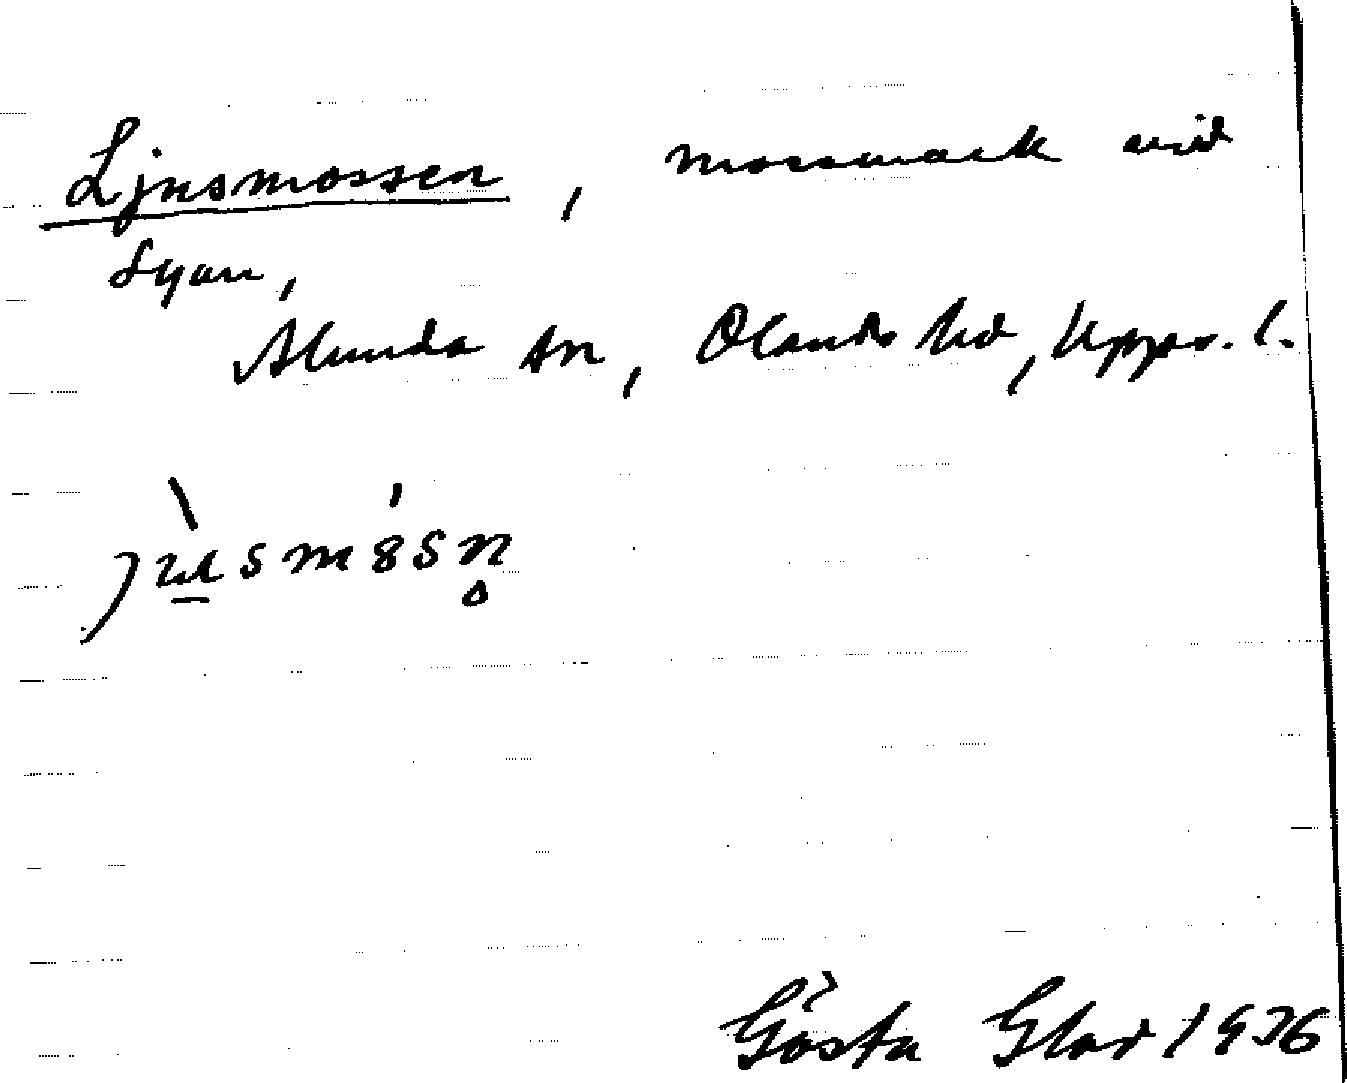 Ljusmossen, mossmark vid
Lyan,
Alunda sn, Olands hd, Upps. l.
Gösta Glad 1936